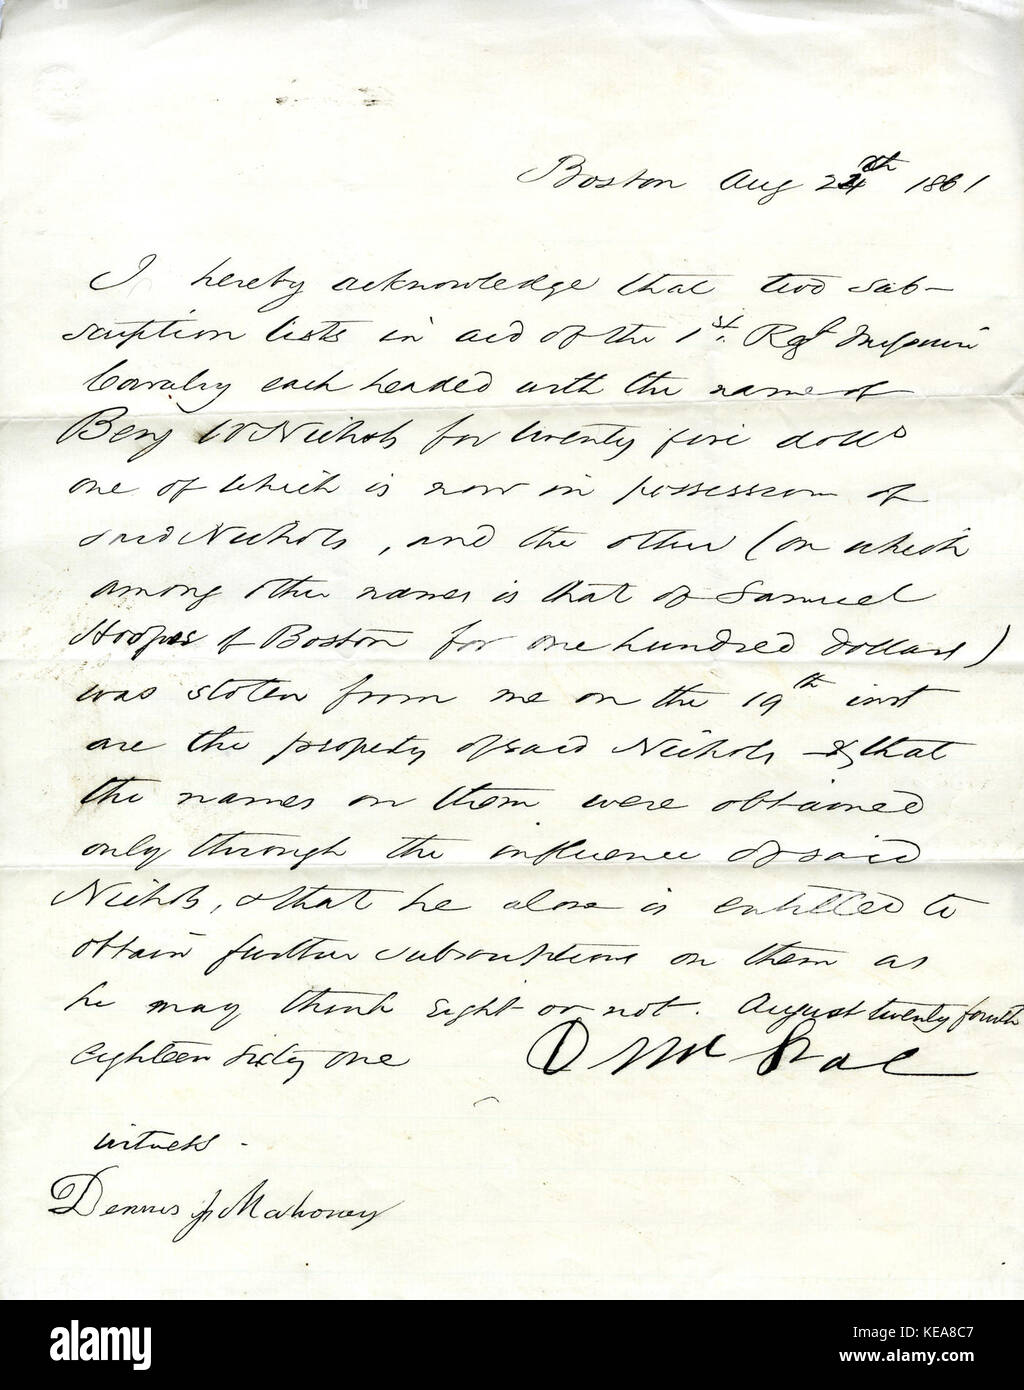 Boston Aug 24th 1861
I hereby acknowledge that two sub-
scription lists in aid of the 1st. Regt Missouri
Cavalry each headed with the name of
Benj W Nichols for twenty five dolls
one of which is now in possession of
said Nichols, and the other (on which
among other names is that of Samuel
Hooper of Boston for one hundred dollars)
was stolen from me on the 19th inst
are the property of said Nichols & that
the names on them were obtained
only through the influence of said
Nichols, & that he alone is entitled to
obtain further subscriptions on them as
he may think right or not. August twenty fourth
eighteen sixty one
witness -
Dennis J Mahoney
alamy
Image ID: KEA8C7
www.alamy.com